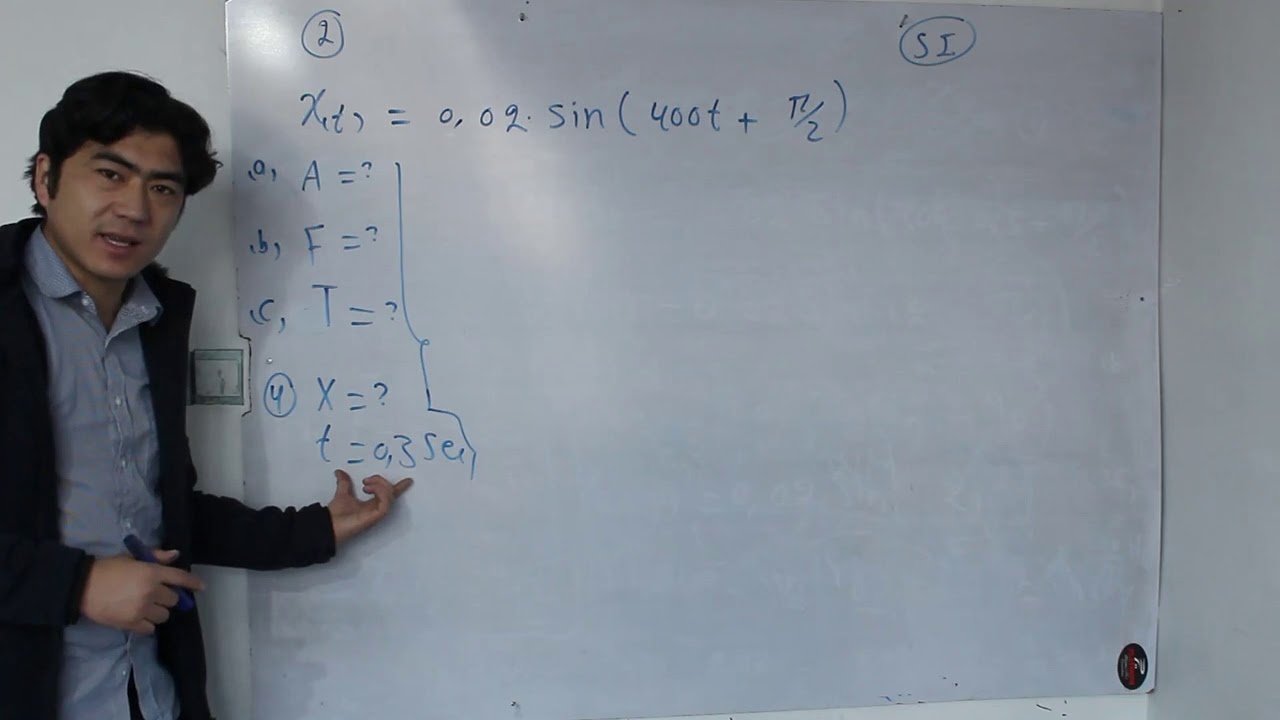 2
SI
X(t) = 0,02 · sin(400t + π/2)
a, A = ?
b, F = ?
c, T = ?
4 X = ?
t = 0,3 Sec